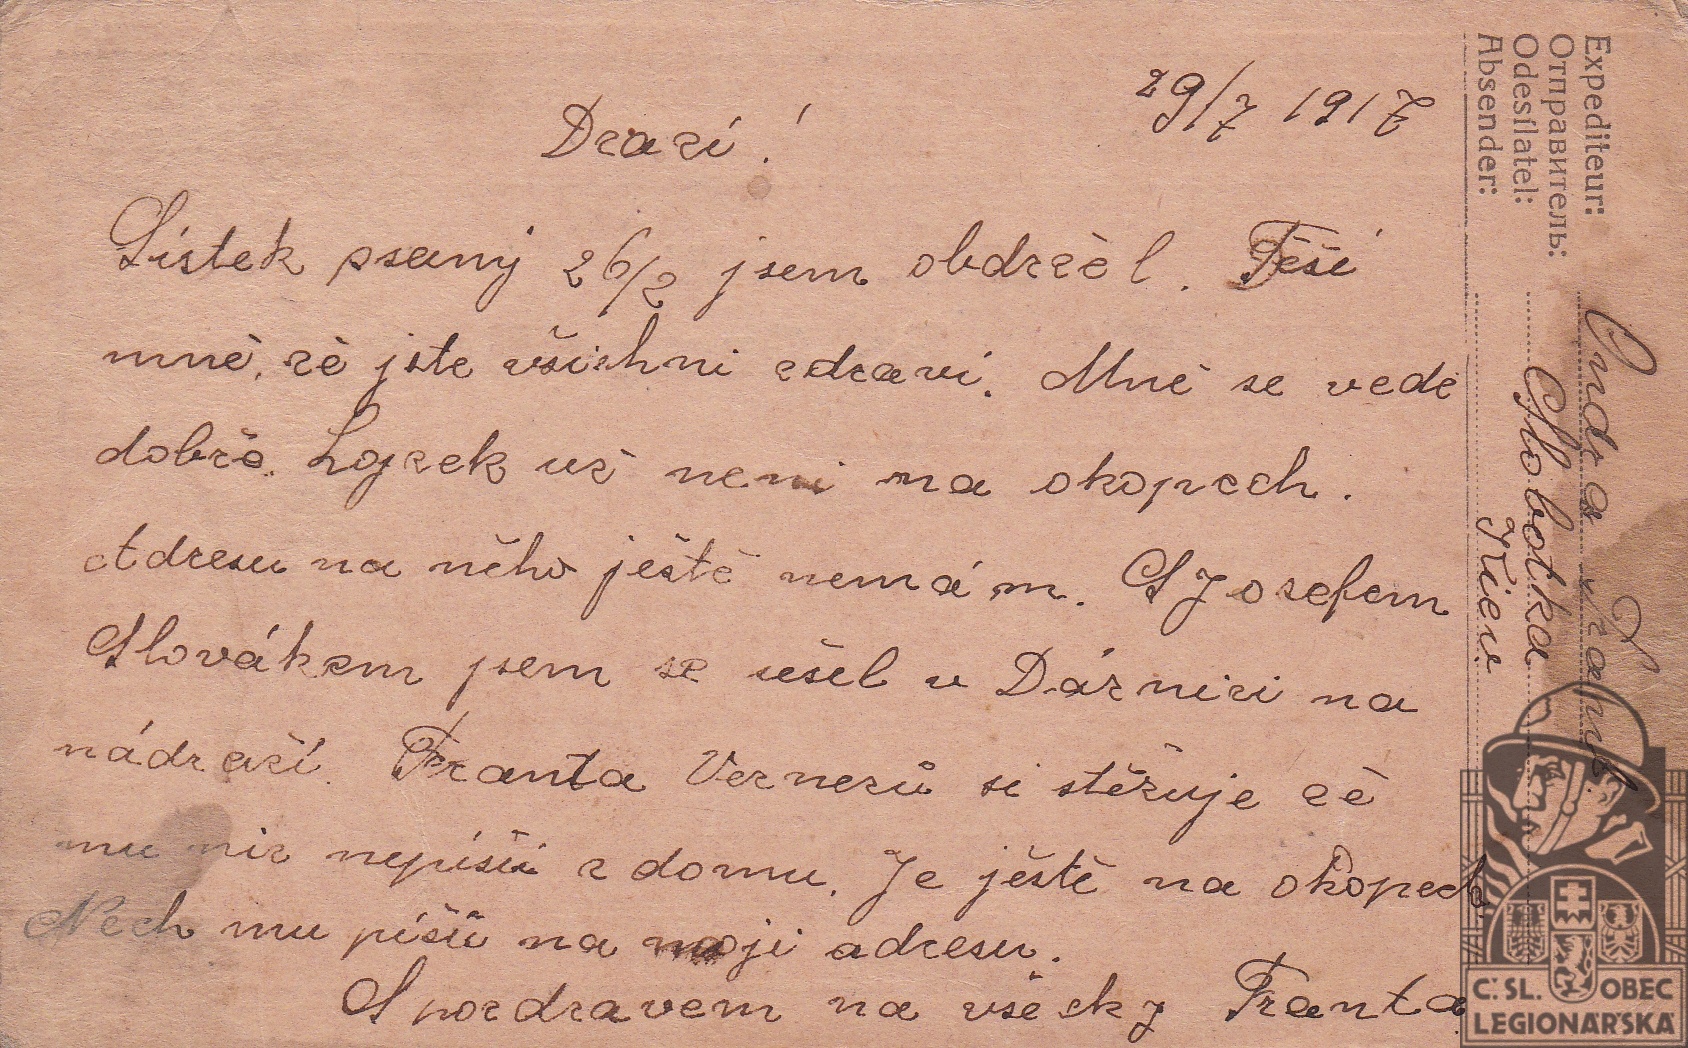 29/7 1917
Drazí!
Lístek psaný 26/2 jsem obdržèl. Těší
mně, žè jste všichni zdraví. Mně se vede
dobřè. Lojzek už neni na okopech.
Adresu na něho ještě nemám. S Josefem
Slovákem jsem se sešel v Dárnici na
nádraží. Franta Vernerů si stěžuje žè
mu nic nepíšií z domu. Je ještě na okopech.
Nech mu píšií na moji adresu.
S pozdravem na všecky Franta
Expediteur:
Отправитель:
Odesílatel:
Absender:
Slobotka
Kiev.
Č.SL. OBEC
LEGIONÁŘSKÁ